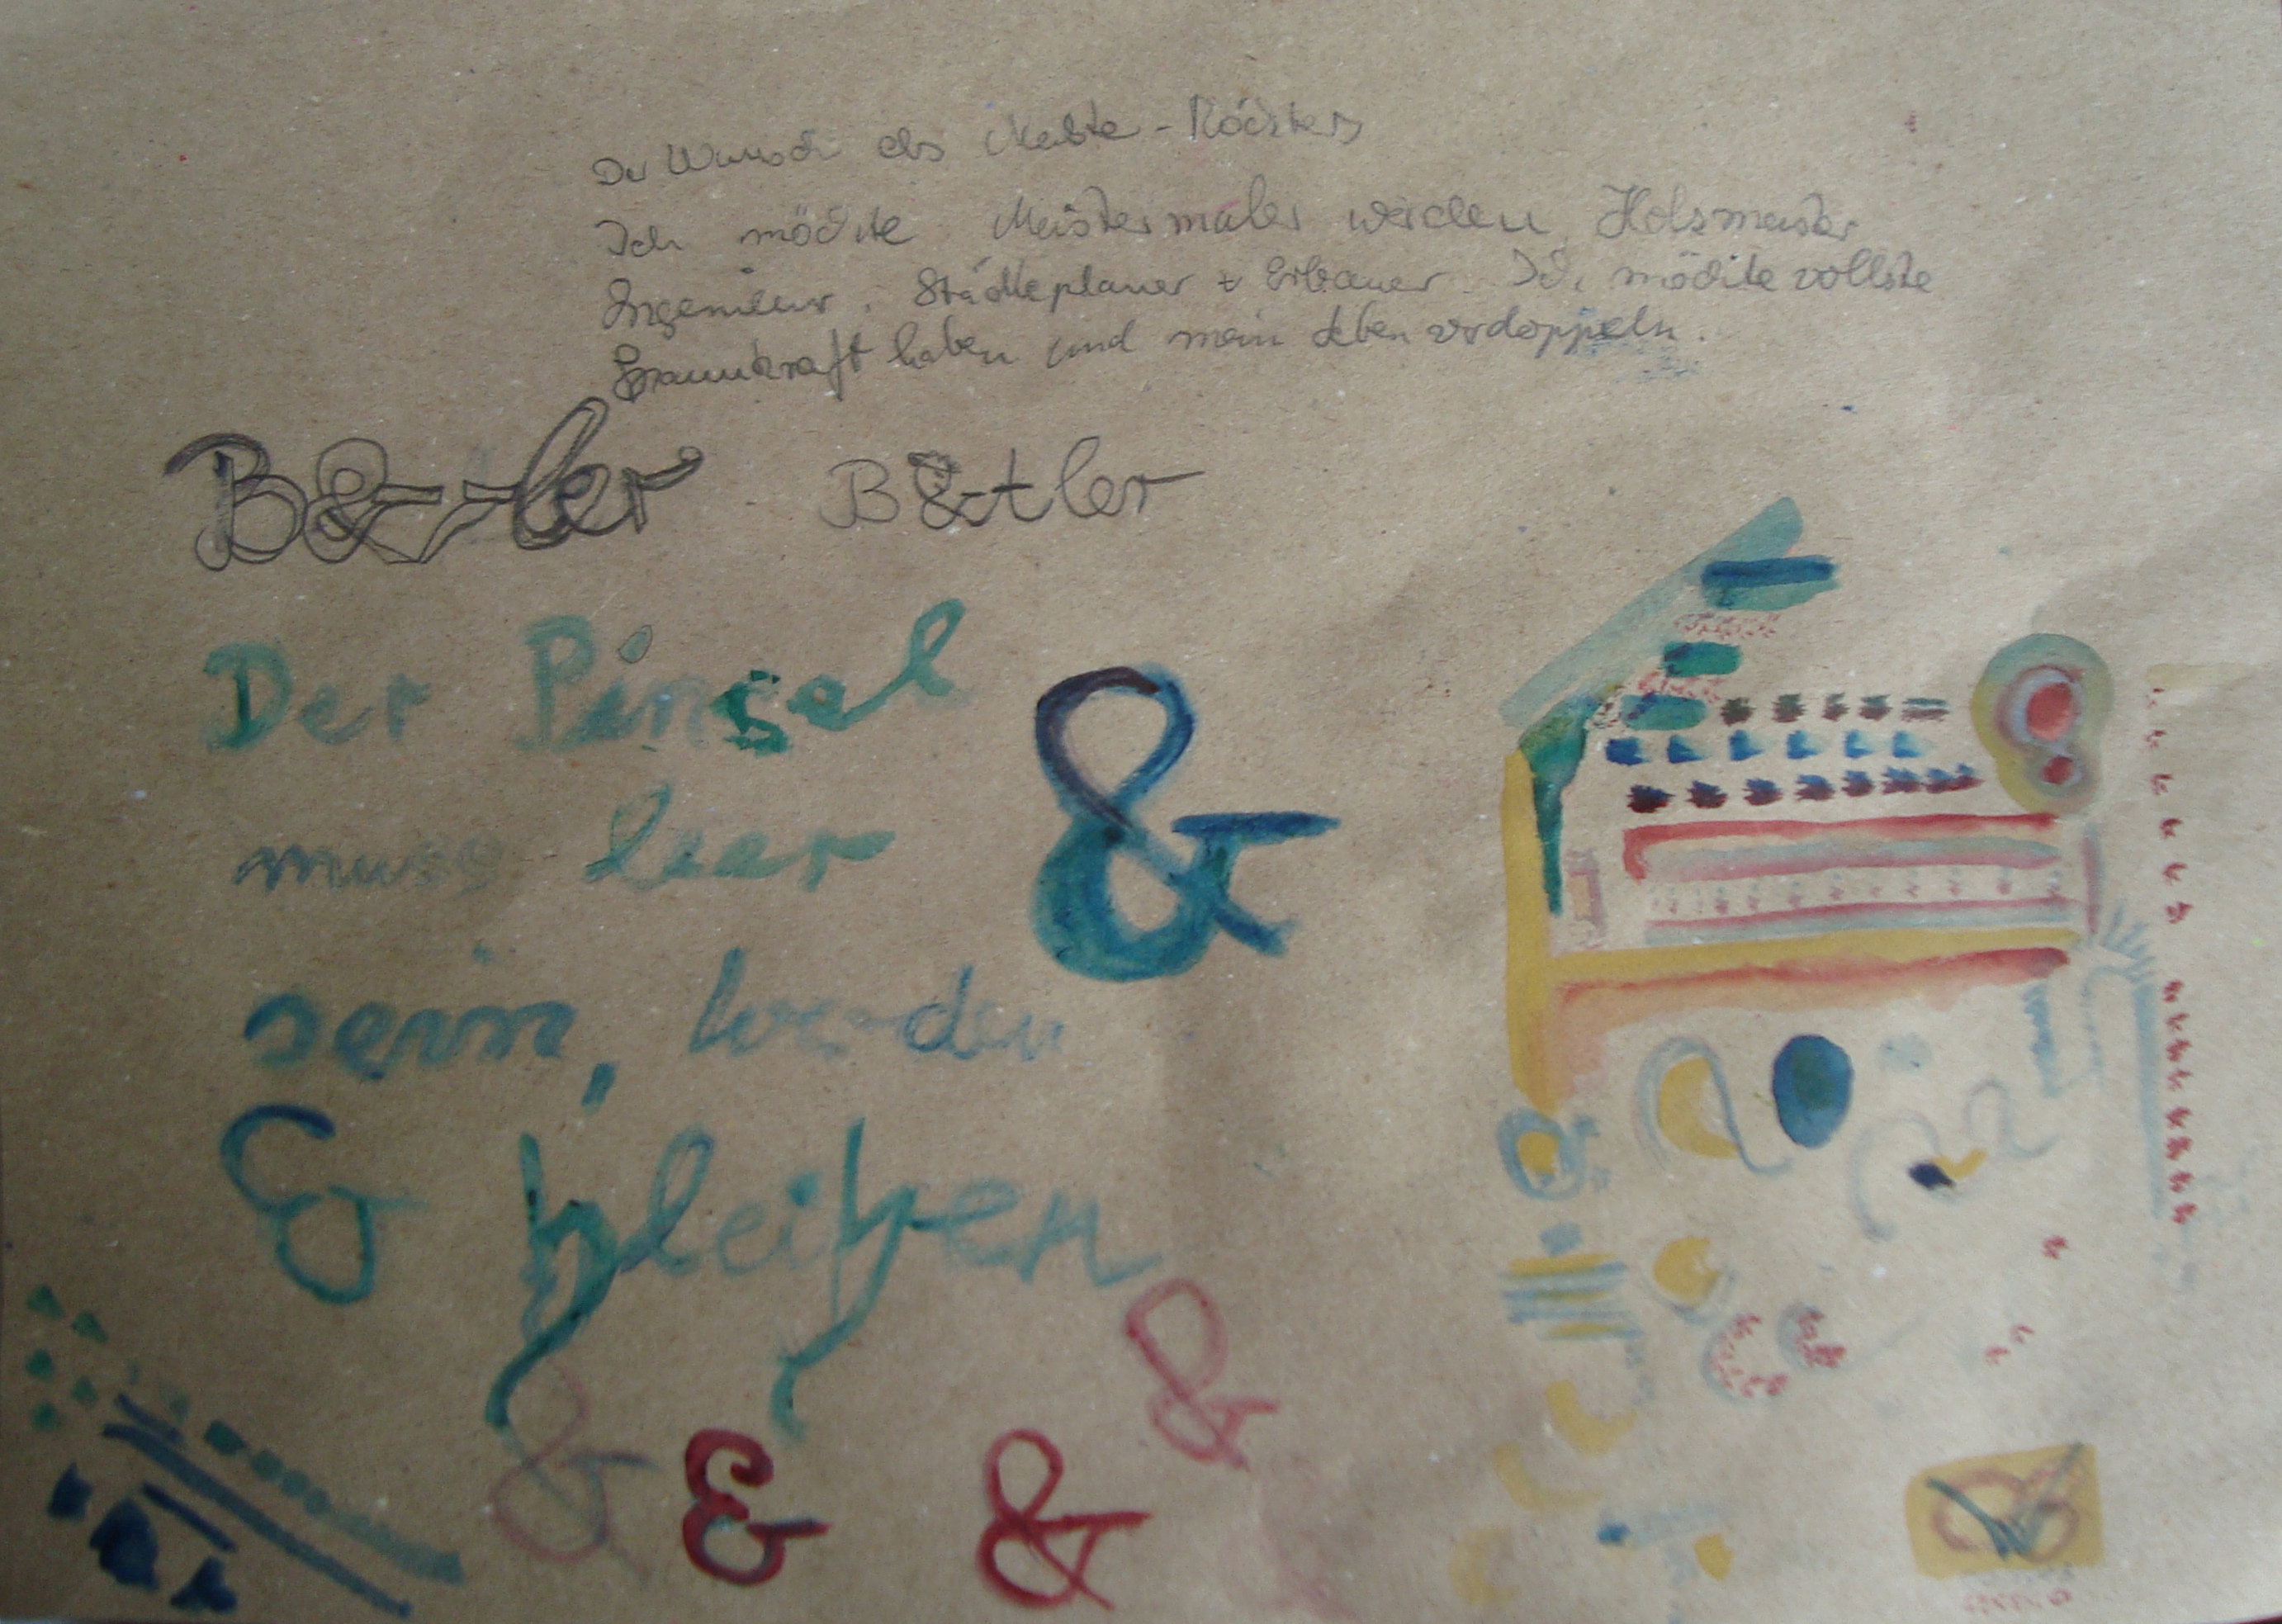 Der Wunsch des
Ich möchte Meistermaler werden, Holzmeister
Ingenieur, Städteplaner + Erbauer. Ich möchte vollste
Spannkraft haben und mein Leben verdoppeln.
B&tler B&tler
Der Pinsel
muss leer
&
sein, werden
& bleiben
&
& & &